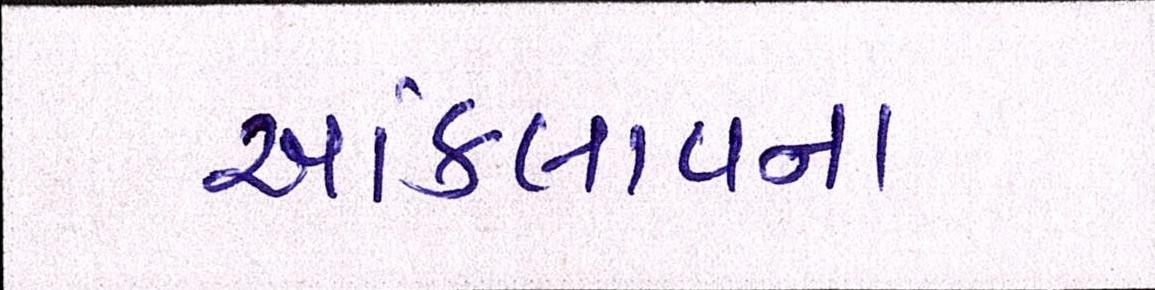 આંકલાવના